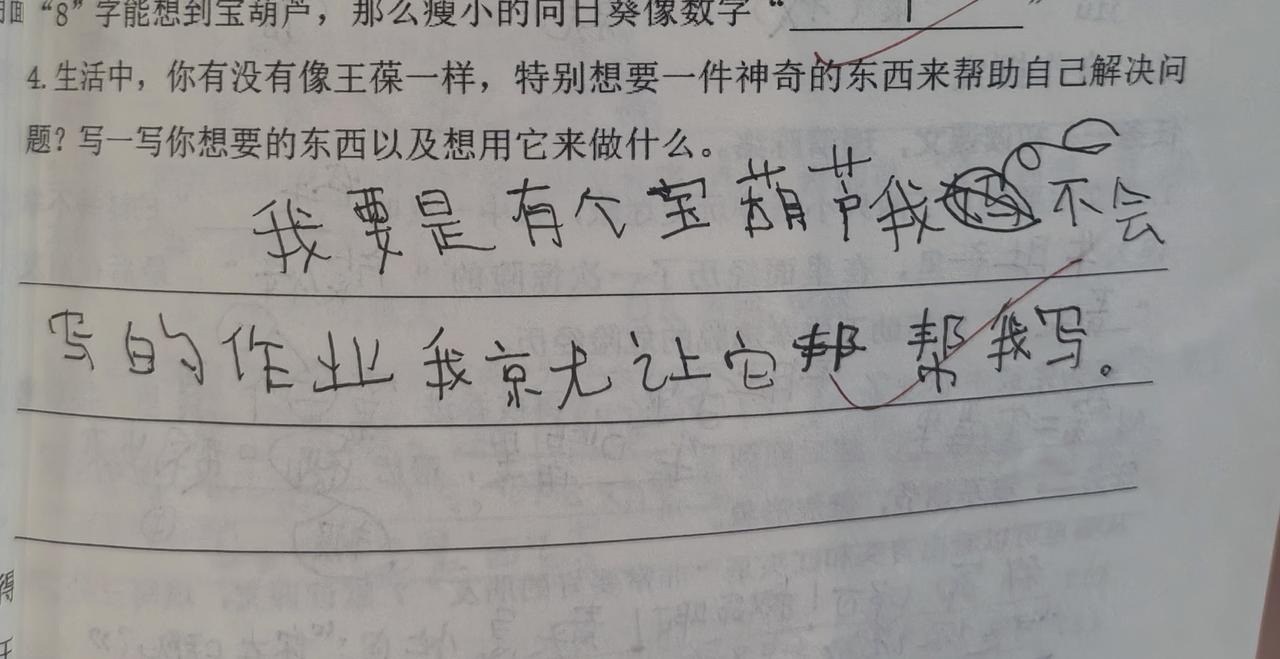 “8”字能想到宝葫芦，那么瘦小的向日葵像数字“1”
4.生活中，你有没有像王葆一样，特别想要一件神奇的东西来帮助自己解决问
题？写一写你想要的东西以及想用它来做什么。
我要是有个宝葫芦我不会
写的作业我京尤让它帮我写。
得